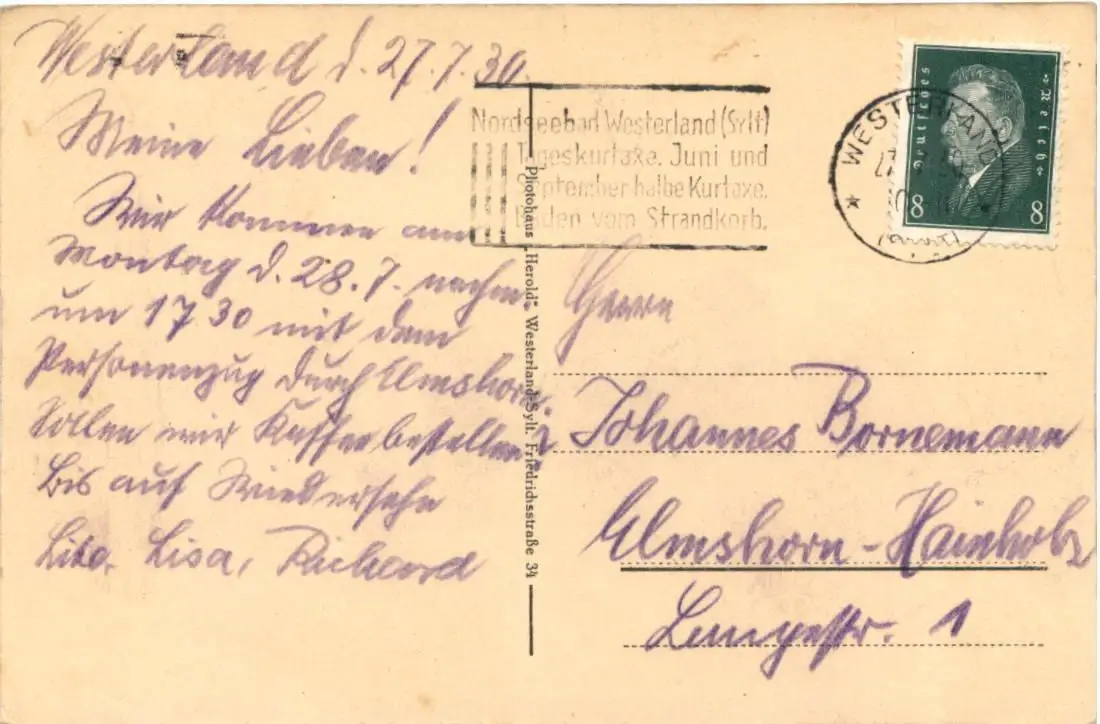 Westerland d. 27.7.30
Meine Lieben!
Wir kommen am
Montag d. 28.7. nachm.
um 17 30 mit dem
Personenzug durch Elmshorn.
Sollen wir Kaffee bestellen?
Bis auf Wiedersehn
Lisa, Richard
Nordseebad Westerland (Sylt)
Tageskurtaxe. Juni und
September halbe Kurtaxe.
Baden vom Strandkorb.
Photohaus „Herold“, Westerland-Sylt. Friedrichsstraße 34
WESTERLAND
Deutsches Reich
8 8
Herrn
Johannes Bornemann
Elmshorn-Hainholz
Langestr. 1